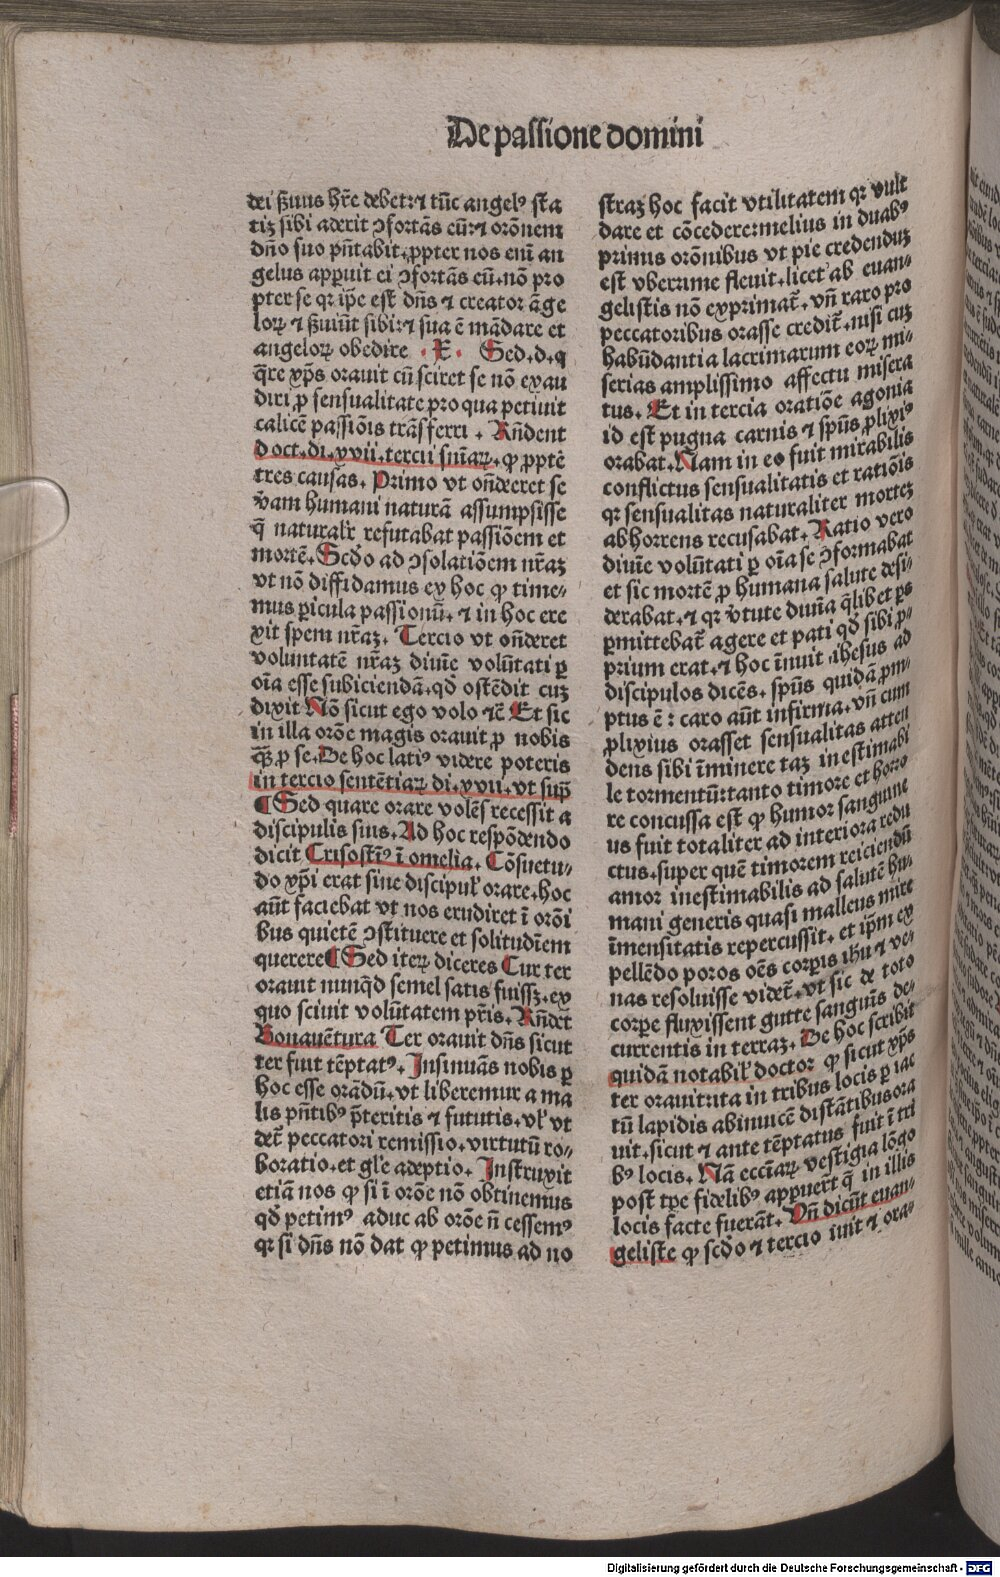 De passione domini
dei ẞuus hr̄e debet:⁊ tūc angelꝰ sta
tiʒ sibi aderit ↄfortās eū:⁊ orōnem
dn̄o suo pn̄tabit.ꝓpter nos em̄ an
gelus apꝑuit ei ↄfortās eū.nō pro
pter se qꝛ ip̄e est dn̄s ⁊ creator āge
loꝝ ⁊ ẞuiūt sibi:⁊ sua ē mādare et
angeloꝝ obedire .X. Sed.d.q
q̄re xp̄s orauit cū sciret se nō exau
diri ꝓ sensualitate pro qua petiuit
calicē passiōis trāsferri . Rn̄dent
doct.di.xvii.tercii sn̄iaꝝ.ꝙ ꝓptē
tres causas. Primo vt on̄deret se
v̄am humani naturā assumpsisse
q̄ naturalr̄ refutabat passiōem et
mortē. Scd̄o ad ↄsolatiōem nr̄aʒ
vt nō diffidamus ex hoc ꝙ time-
mus ꝑicula passionū. ⁊ in hoc ere
xit spem nr̄aʒ. Tercio vt on̄deret
voluntatē nr̄aʒ diuīe volūtati ꝑ
oīa esse subiciendā.qd̄ ostēdit cuʒ
dixit Nō sicut ego volo ⁊c̄ Et sic
in illa orōe magis orauit ꝓ nobis
q̄ʒ ꝓ se. De hoc latiꝰ videre poteris
in tercio sentētiaꝝ di.xvii.vt sup̄
¶ Sed quare orare volēs recessit a
discipulis suis. Ad hoc respōdendo
dicit Crisostīꝰ ī omelia. Cōsuetu-
do xp̄i erat sine discipul̄ orare.hoc
aūt faciebat vt nos erudiret ī orōi
bus quietē ↄstituere et solitudīem
querere ¶ Sed iteꝝ diceres Cur ter
orauit nunqd̄ semel satis fuissʒ.ex
quo sciuit volūtatem pr̄is. Rn̄det
Bonauētura Ter orauit dn̄s sicut
ter fuit tēptatꝰ. Insinuās nobis ꝑ
hoc esse orādū.vt liberemur a ma
lis pn̄tibꝰ p̄teritis ⁊ fututis.vl̄ vt
det̄ peccatori remissio.virtutū ro-
boratio.et gl̄e adeptio. Instruxit
etiā nos ꝙ si ī orōe nō obtinemus
qd̄ petimꝰ aduc ab orōe n̄ cessemꝰ
qꝛ si dn̄s nō dat ꝙ petimus ad no
straʒ hoc facit vtilitatem qꝛ vult
dare et cōcedere:melius in duabꝰ
primis orōnibus vt pie credenduʒ
est vberrime fleuit.licet ab euan-
gelistis nō exprimat̄. vn̄ raro pro
peccatoribus orasse credit̄.nisi cuʒ
habūdantia lacrimarum eoꝝ mi-
serias amplissimo affectu misera
tus. Et in tercia oratiōe agonia
id est pugna carnis ⁊ spūs ꝓlixiꝰ
orabat. Nam in eo fuit mirabilis
conflictus sensualitatis et ratiōis
qꝛ sensualitas naturaliter morteʒ
abhorrens recusabat. Ratio vero
diuīe volūtati ꝑ oīa se ↄformabat
et sic mortē ꝓ humana salute desi-
derabat.⁊ qꝛ v̄tute diuīa q̄libet ps
ꝑmittebat̄ agere et pati qd̄ sibi ꝓ-
prium erat.⁊ hoc īnuit ihesus ad
discipulos dicēs. spūs quidā ꝓm-
ptus ē : caro aūt infirma.vn̄ cum
ꝓlixius orasset sensualitas atten
dens sibi īminere taʒ inestimabi
le tormentū:tanto timore et horro
re concussa est ꝙ humor sanguine
us fuit totaliter ad interiora redu
ctus.super quē timorem reiciendū
amor inestimabilis ad salutē hu-
mani generis quasi malleus mire
īmensitatis repercussit. et ip̄m ex
pellēdo poros oēs corꝑis ihū ⁊ ve-
nas resoluisse videt̄.vt sic de toto
corꝑe fluxissent gutte sanguīs de-
currentis in terraʒ. De hoc scribit
quidā notabil̄ doctor ꝙ sicut xp̄s
ter orauit:ita in tribus locis ꝑ iac
tū lapidis abinuicē distātibus ora
uit.sicut ⁊ ante tēptatus fuit ī tri
bꝰ locis. Nā ecciaꝝ vestigia lōgo
post tꝑe fidelibꝰ apꝑuer̄t q̄ in illis
locis facte fuerāt. Vn̄ dicūt euan-
geliste ꝙ scd̄o ⁊ tercio iuit ⁊ ora-
Digitalisierung gefördert durch die Deutsche Forschungsgemeinschaft - DFG